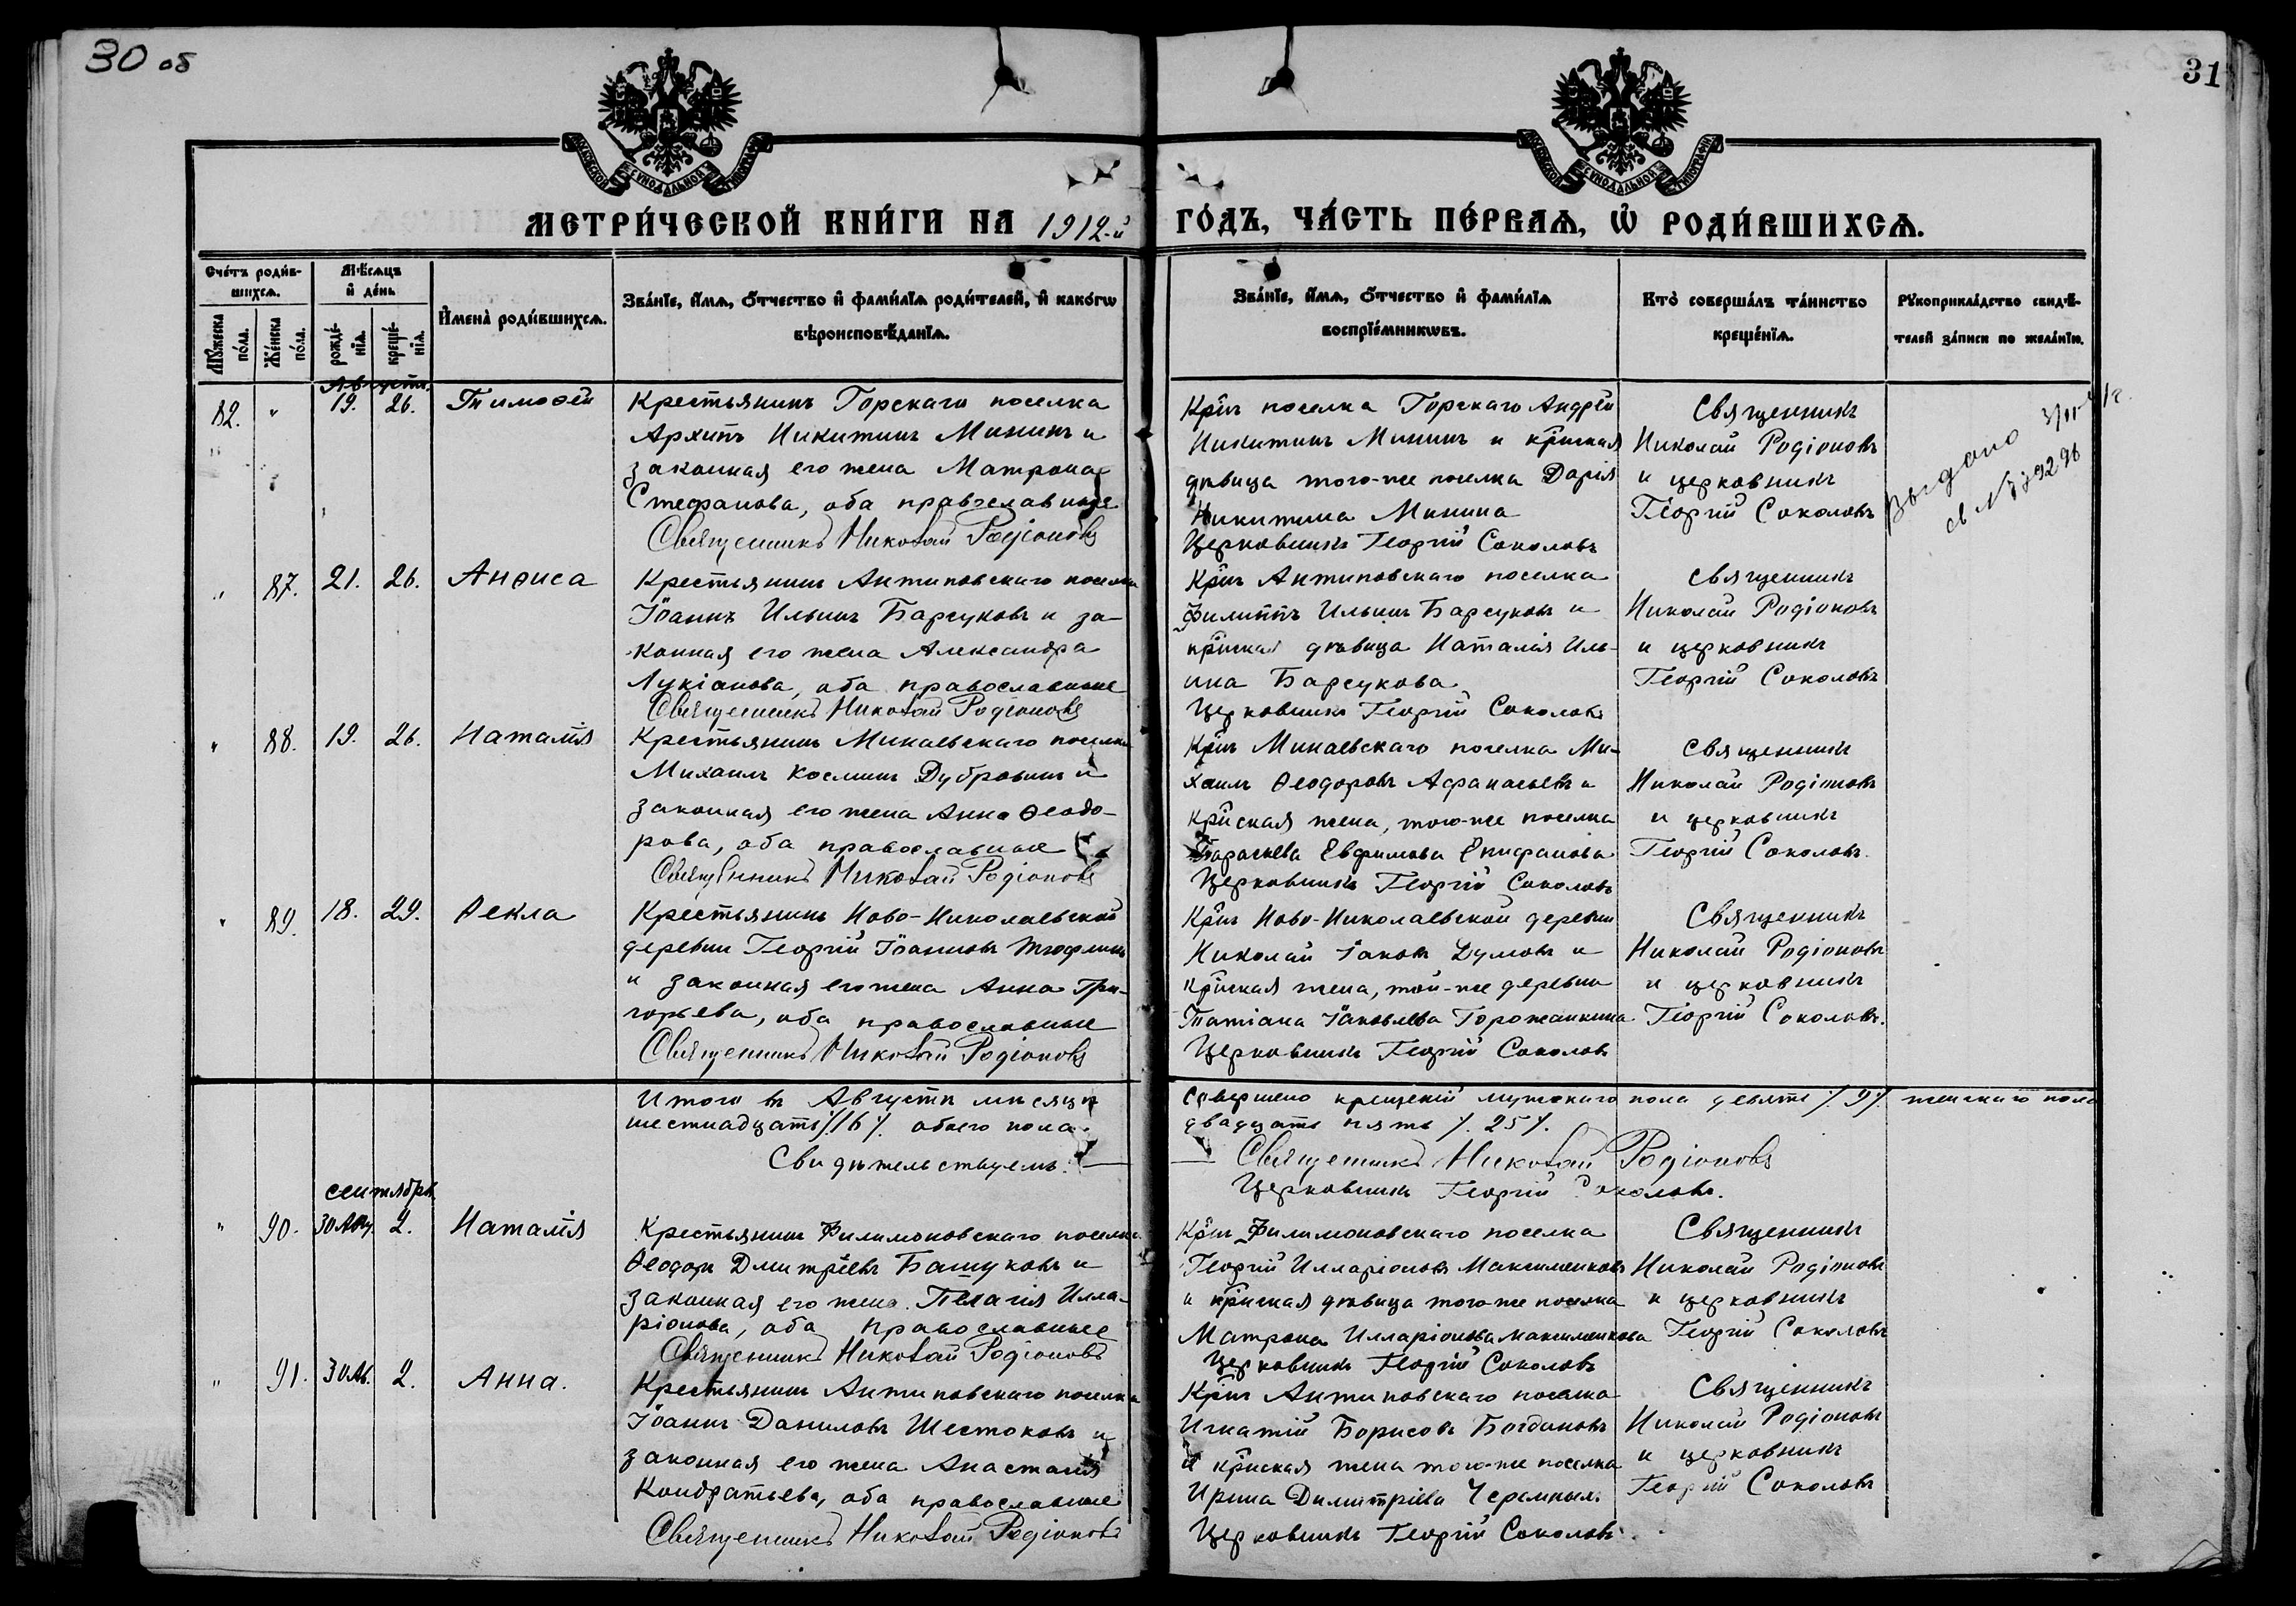 30 об
31
МОСКОВСКОЙ СѴНОДАЛЬНОЙ ТИПОГРАФІИ
МОСКОВСКОЙ СѴНОДАЛЬНОЙ ТИПОГРАФІИ
МЕТРИ́ЧЕСКОЙ КНИ́ГИ НА 1912-й ГО́ДЪ, ЧА́СТЬ ПЕ́РВАѦ, Ѡ҆ РОДИ́ВШИХСѦ.
Сче́тъ роди́в-
шихсѧ.
Мѣ́сѧцъ
и҆ де́нь
Мꙋ́жеска
по́ла.
Же́нска
по́ла.
рожде́-
нїѧ.
креще́-
нїѧ.
И҆мена̀ роди́вшихсѧ.
Зва́нїе, и҆́мѧ, ѻ҆́тчество и҆ фами́лїѧ роди́телей, и҆ како́гѡ
вѣроисповѣ́данїѧ.
Зва́нїе, и҆́мѧ, ѻ҆́тчество и҆ фами́лїѧ
воспрїе́мникѡвъ.
Кто̀ соверша́лъ та́инство
креще́нїѧ.
Рꙋкоприкла́дство свидѣ́-
телей за́писи по жела́нїю.
Августъ.
82. " 19. 26. Тимоѳей
Крестьянинъ Горскаго поселка
Архипъ Никитинъ Мининъ и
законная его жена Матрона
Стефанова, оба православные
Священникъ Николай Родіоновъ
Кр͠інъ поселка Горскаго Андрей
Никитинъ Мининъ и кр͠інская
дѣвица того-же поселка Дарія
Никитина Минина
Церковникъ Георгій Соколовъ
Священникъ
Николай Родіоновъ
и церковникъ
Георгій Соколовъ
Выдано
" 87. 21. 26. Анѳиса
Крестьянинъ Антиповскаго поселка
Іоаннъ Ильинъ Барсуковъ и за-
конная его жена Александра
Лукіанова, оба православные
Священникъ Николай Родіоновъ
Кр͠інъ Антиповскаго поселка
Филиппъ Ильинъ Барсуковъ и
кр͠інская дѣвица Наталія Иль-
ина Барсукова
Церковникъ Георгій Соколовъ
Священникъ
Николай Родіоновъ
и церковникъ
Георгій Соколовъ
" 88. 19. 26. Наталія
Крестьянинъ Минаевскаго поселка
Михаилъ Косминъ Дубровинъ и
законная его жена Анна Ѳеодо-
рова, оба православные
Священникъ Николай Родіоновъ
Кр͠інъ Минаевскаго поселка Ми-
хаилъ Ѳеодоровъ Афанасьевъ и
кр͠інская жена, того-же поселка
Параскева Евфимова Епифанова
Церковникъ Георгій Соколовъ
Священникъ
Николай Родіоновъ
и церковникъ
Георгій Соколовъ.
" 89. 18. 29. Ѳекла
Крестьянинъ Ново-Николаевской
деревни Георгій Іоанновъ Тюфлинъ
и законная его жена Анна Гри-
горьева, оба православные
Священникъ Николай Родіоновъ
Кр͠інъ Ново-Николаевской деревни
Николай Іаковъ Думовъ и
кр͠інская жена, той-же деревни
Татіана Іаковлева Горожанкина
Церковникъ Георгій Соколовъ
Священникъ
Николай Родіоновъ
и церковникъ
Георгій Соколовъ.
Итого въ Августѣ мѣсяцѣ совершено крещеній мужскаго пола девять /. 9 /. женскаго пола
шестнадцать /. 16 /. обоего пола двадцать пять /. 25 /.
Свидѣтельствуемъ: — Священникъ Николай Родіоновъ
Церковникъ Георгій Соколовъ.
Сентябрь
" 90. 30 Авг. 2. Наталія
Крестьянинъ Филимоновскаго поселка
Ѳеодоръ Дмитріевъ Башуковъ и
законная его жена Пелагія Илла-
ріонова, оба православные
Священникъ Николай Родіоновъ
Кр͠інъ Филимоновскаго поселка
Георгій Илларіоновъ Максименковъ
и кр͠інская дѣвица того-же поселка
Матрона Илларіонова Максименкова
Церковникъ Георгій Соколовъ
Священникъ
Николай Родіоновъ
и церковникъ
Георгій Соколовъ
" 91. 30 Ав. 2. Анна.
Крестьянинъ Антиповскаго поселка
Іоаннъ Даниловъ Шестоковъ и
законная его жена Анастасія
Кондратьева, оба православные
Священникъ Николай Родіоновъ
Кр͠інъ Антиповскаго поселка
Игнатій Борисовъ Богдановъ
и кр͠інская жена того-же поселка
Ирина Димитріева
Церковникъ Георгій Соколовъ.
Священникъ
Николай Родіоновъ
и церковникъ
Георгій Соколовъ